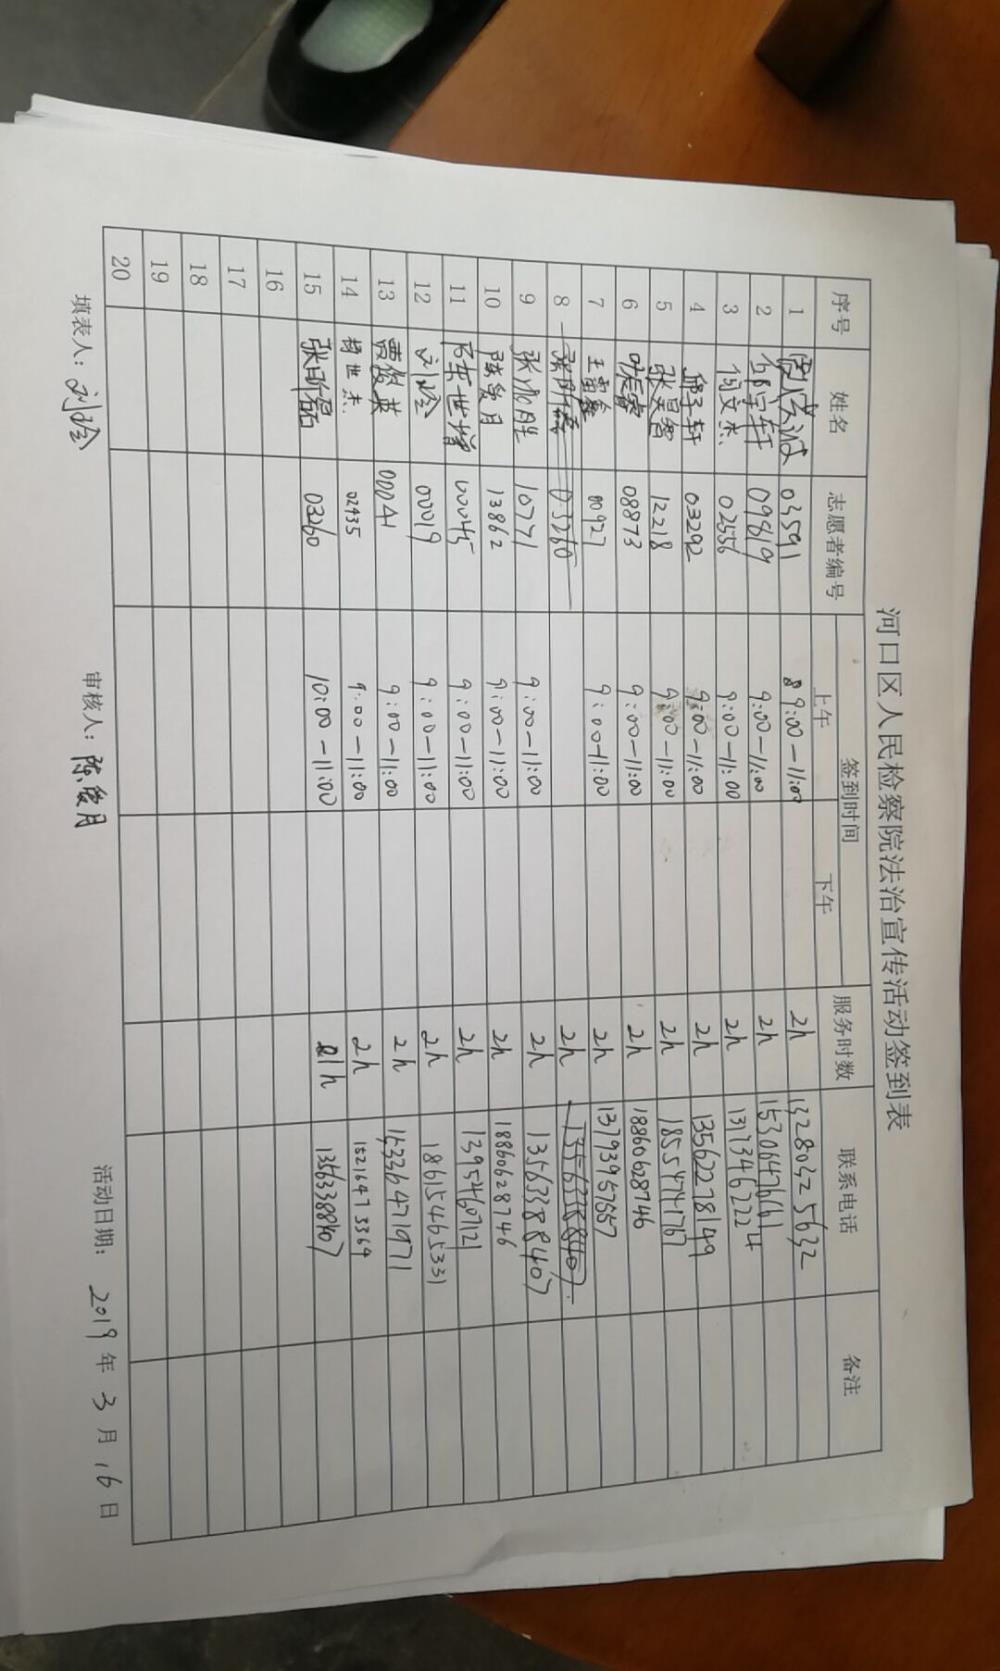 河口区人民检察院法治宣传活动签到表
序号 姓名 志愿者编号 签到时间 服务时数 联系电话 备注
上午 下午
1 03591 9:00-11:00 2h 13280325632
2 09819 9:00-11:00 2h 15306476661
3 倪文杰 02556 9:00-11:00 2h 13173462224
4 03292 9:00-11:00 2h 13562278149
5 张昊智 12218 9:00-11:00 2h 18554741767
6 08873 9:00-11:00 2h 18860628746
7 王雷鑫 00927 9:00-11:00 2h 13793957657
8 03260 2h 13563388407
9 张加胜 10771 9:00-11:00 2h 13563388407
10 陈爱月 13862 9:00-11:00 2h 18860628746
11 陈世增 00045 9:00-11:00 2h 13954607121
12 刘玲 00019 9:00-11:00 2h 18615465331
13 贾俊英 00041 9:00-11:00 2h 15336471971
14 杨世杰 02435 9:00-11:00 2h 15216473369
15 03260 10:00-11:00 1h 13563388407
16
17
18
19
20
填表人：刘玲 审核人：陈爱月 活动日期： 2019 年 3 月 16 日